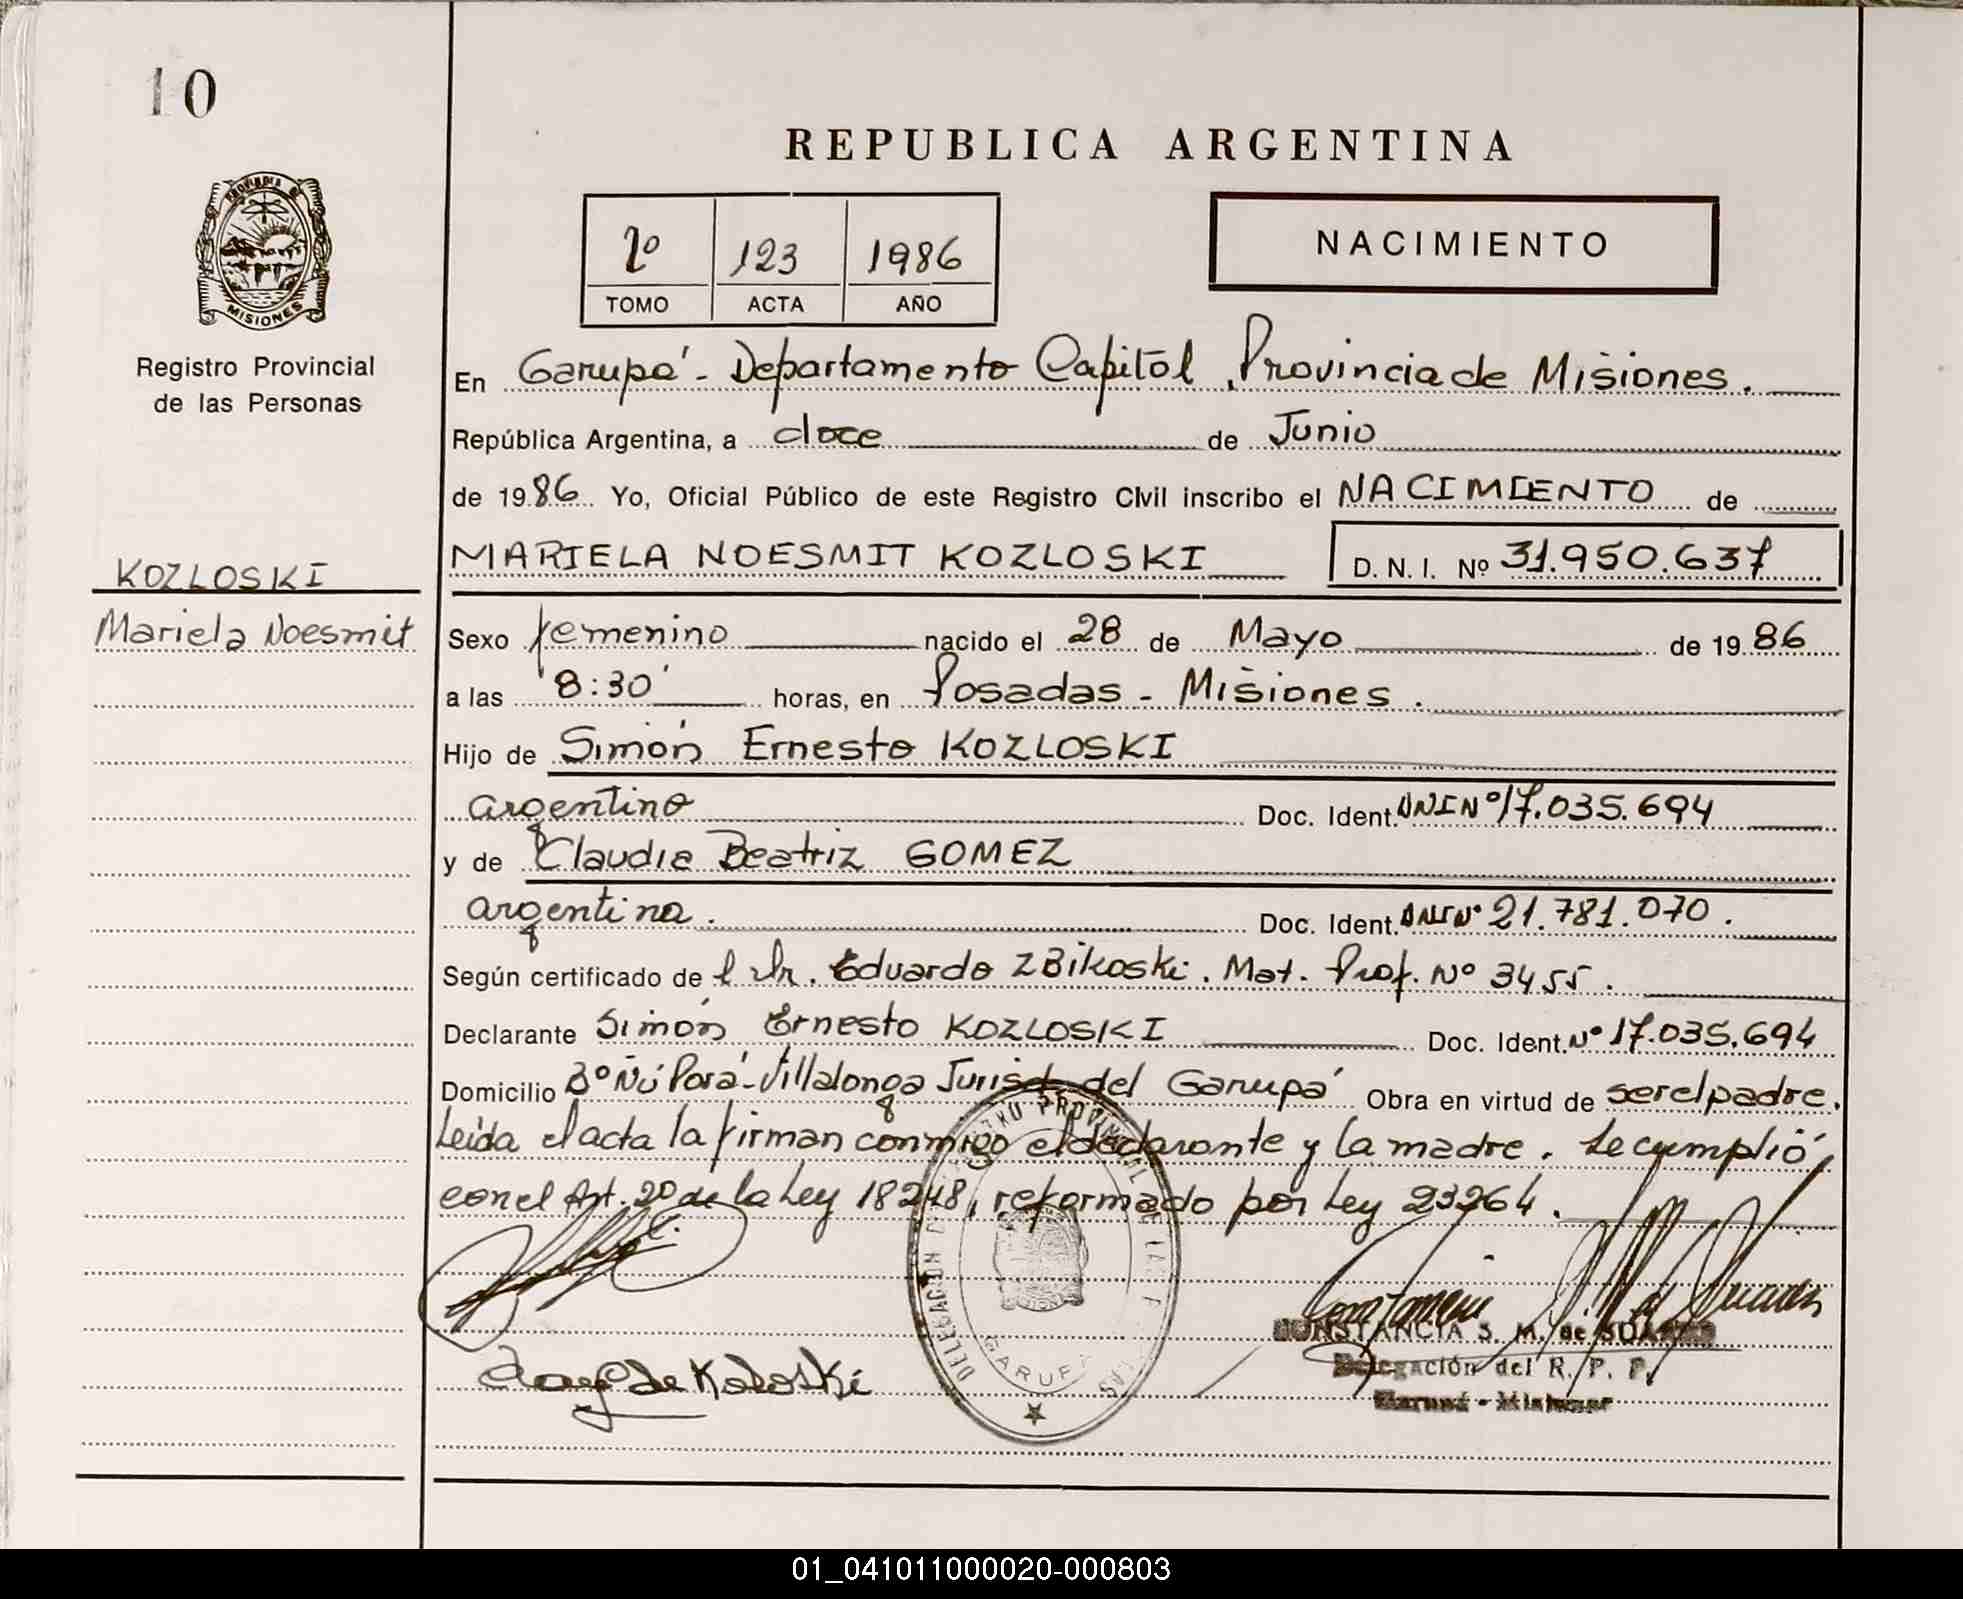 10
REPUBLICA ARGENTINA
PROVINCIA DE
MISIONES
Registro Provincial
de las Personas
2º 123 1986
TOMO ACTA AÑO
NACIMIENTO
En Garupá - Departamento Capital, Provincia de Misiones.
República Argentina, a doce de Junio
de 1986 Yo, Oficial Público de este Registro Civil inscribo el NACIMIENTO de
MARIELA NOESMIT KOZLOSKI D.N.I. Nº 31.950.637
KOZLOSKI
Mariela Noesmit
Sexo femenino nacido el 28 de Mayo de 1986
a las 8:30' horas, en Posadas - Misiones.
Hijo de Simón Ernesto KOZLOSKI
argentino Doc. Ident. DNI Nº 17.035.694
y de Claudia Beatriz GOMEZ
argentina. Doc. Ident. DNI Nº 21.781.070.
Según certificado de l Dr. Eduardo ZBikoski. Mat. Prof. Nº 3455.
Declarante Simón Ernesto KOZLOSKI Doc. Ident. Nº 17.035.694
Domicilio Bº Ñú Porá - Villalonga Jurisd. del Garupá Obra en virtud de ser el padre.
Leída el acta la firman conmigo el declarante y la madre. Se cumplió
con el Art. 2º de la Ley 18248, reformado por Ley 23264.
GARUPA
CONSTANCIA S. M. de SUAREZ
Delegación del R. P. P.
Garupá - Misiones
de Kozloski
01_041011000020-000803